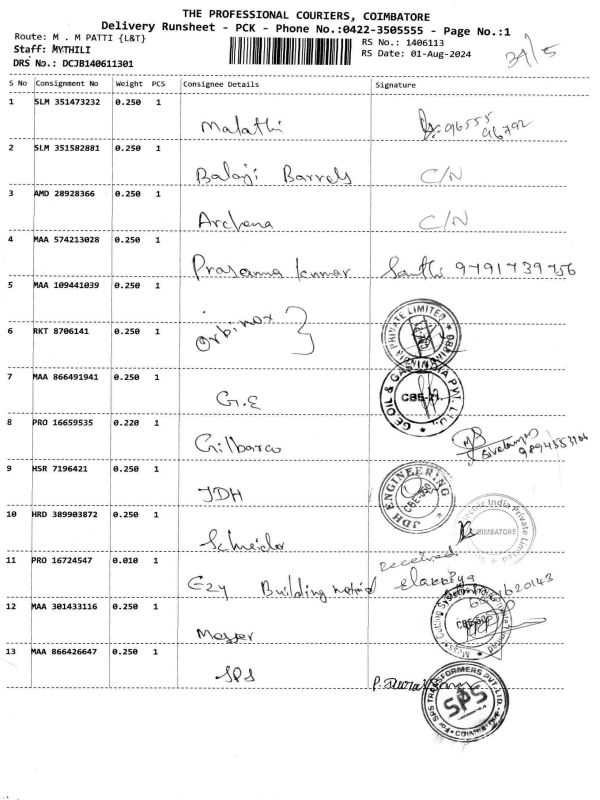 THE PROFESSIONAL COURIERS, COIMBATORE
Delivery Runsheet - PCK - Phone No.:0422-3505555 - Page No.:1
Route: M . M PATTI {L&T}
RS No.: 1406113
Staff: MYTHILI
RS Date: 01-Aug-2024
DRS No.: DCJB140611301
34/5
S No Consignment No Weight PCS Consignee Details Signature
1 SLM 351473232 0.250 1
Malathi 96555
96792
2 SLM 351582881 0.250 1
Balaji Barrels C/N
3 AMD 28928366 0.250 1
Archana C/N
4 MAA 574213028 0.250 1
Prasanna kumar Santhi 9791739756
5 MAA 109441039 0.250 1
Orbinox
6 RKT 8706141 0.250 1
7 MAA 866491941 0.250 1
G.E GE OIL & GAS INDIA PVT. LTD.
8 PRO 16659535 0.220 1
Gilbarco
9 HSR 7196421 0.250 1
JDH JDH ENGINEERING
10 HRD 389903872 0.250 1
Schneider COIMBATORE
Received
11 PRO 16724547 0.010 1
Ezy Building
12 MAA 301433116 0.250 1
Messer
13 MAA 866426647 0.250 1
SPS
For SPS TRANSFORMERS PVT. LTD.
SPS